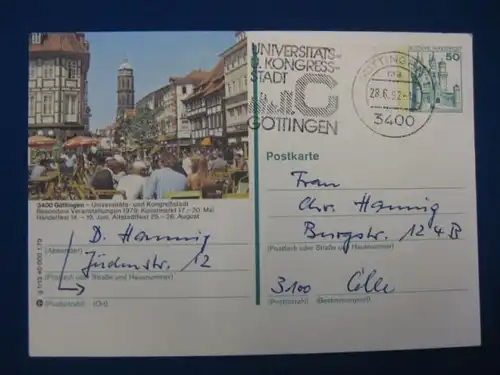 UNIVERSITÄTS-
U. KONGRESS-
STADT
GÖTTINGEN
GÖTTINGEN
28.6.82
3400
DEUTSCHE BUNDESPOST
50
3400 Göttingen – Universitäts- und Kongreßstadt
Besondere Veranstaltungen 1979: Kunstmarkt 17. – 20. Mai
Händelfest 14. – 19. Juni, Altstadtfest 25. – 26. August
Postkarte
D. Hannig
(Absender)
Jüdenstr. 12
(Postfach oder Straße und Hausnummer)
(Postleitzahl) (Ort)
Frau
Chr. Hannig
Burgstr. 124B
(Postfach oder Straße und Hausnummer)
3100 Celle
(Postleitzahl) (Bestimmungsort)